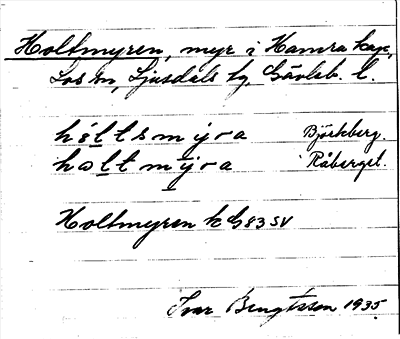 Holtmyren, myr i Hamra kap,
Los sn, Ljusdals tg, Gävleb. l.
hóltsmýra Björkberg.
hɷltmýra Råberget.
Holtmyren k G83SV
Ivar Bengtsson 1935